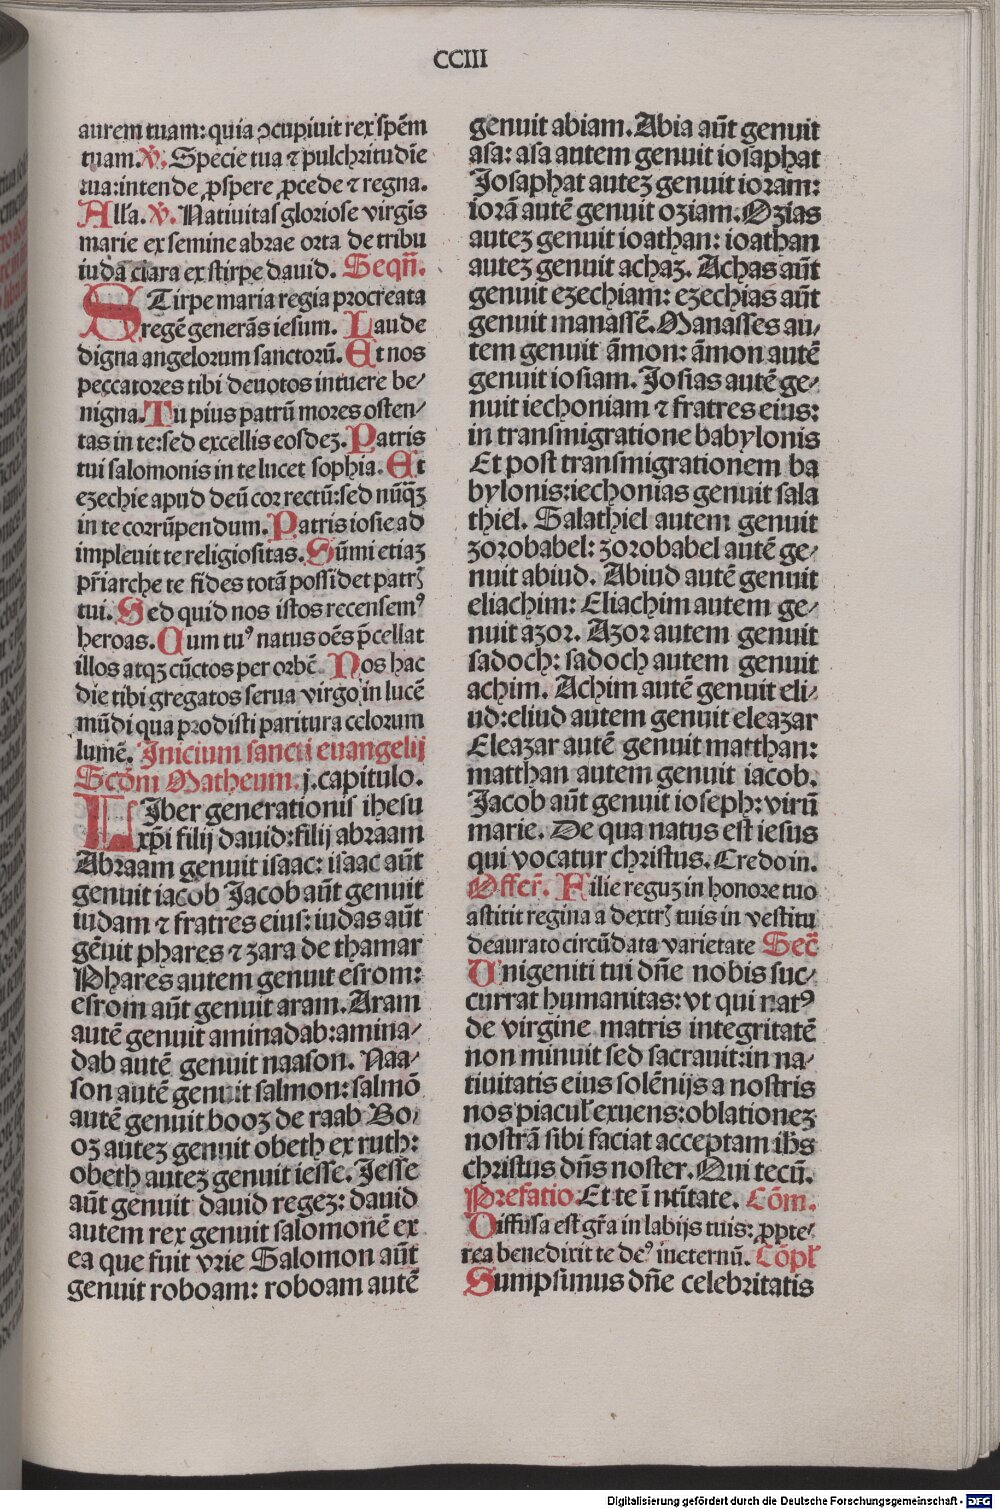 CCIII
aurem tuam: quia ꝯcupiuit rex spēm
tuam. ℣. Specie tua ⁊ pulchritudīe
tua: intende ꝓspere ꝓcede ⁊ regna.
Alła. ℣. Natiuitas gloriose virgīs
marie ex semine abrae orta de tribu
iuda clara ex stirpe dauid. Seqñ.
STirpe maria regia procreata
regē generās iesum. Laude
digna angelorum sanctorū. Et nos
peccatores tibi deuotos intuere be⸗
nigna. Tu pius patrū mores osten⸗
tas in te: sed excellis eosdez. Patris
tui salomonis in te lucet sophia. Et
ezechie apud deū cor rectū: sed nūqꝫ
in te corrūpendum. Patris iosie ad
impleuit te religiositas. Sūmi etiaꝫ
pr̄iarche te fides totā possidet patrꝭ
tui. Sed quid nos istos recensemꝰ
heroas. Cum tuꝰ natus oēs p̄cellat
illos atqꝫ cūctos per orbē. Nos hac
die tibi gregatos serua virgo in lucē
mūdi qua prodisti paritura celorum
lumē. Inicium sancti euangelij
Scdm̄ Matheum. j. capitulo.
LIber generationis ihesu
xp̄i filij dauid: filij abraam
Abraam genuit isaac: isaac aūt
genuit iacob Jacob aūt genuit
iudam ⁊ fratres eius: iudas aūt
gēuit phares ⁊ zara de thamar
Phares autem genuit esrom:
esrom aūt genuit aram. Aram
autē genuit aminadab: amina⸗
dab autē genuit naason. Naa⸗
son autē genuit salmon: salmō
autē genuit booz de raab Bo⸗
oz autez genuit obeth ex ruth:
obeth autez genuit iesse. Jesse
aūt genuit dauid regez: dauid
autem rex genuit salomonē ex
ea que fuit vrie Salomon aūt
genuit roboam: roboam autē
genuit abiam. Abia aūt genuit
asa: asa autem genuit iosaphat
Josaphat autez genuit ioram:
iorā autē genuit oziam. Ozias
autez genuit ioathan: ioathan
autez genuit achaz. Achas aūt
genuit ezechiam: ezechias aūt
genuit manassē. Manasses au⸗
tem genuit āmon: āmon autē
genuit iosiam. Josias autē ge⸗
nuit iechoniam ⁊ fratres eius:
in transmigratione babylonis
Et post transmigrationem ba
bylonis: iechonias genuit sala
thiel. Salathiel autem genuit
zorobabel: zorobabel autē ge⸗
nuit abiud. Abiud autē genuit
eliachim: Eliachim autem ge⸗
nuit azor. Azor autem genuit
sadoch: sadoch autem genuit
achim. Achim autē genuit eli⸗
ud: eliud autem genuit eleazar
Eleazar autē genuit matthan:
matthan autem genuit iacob.
Jacob aūt genuit ioseph: virū
marie. De qua natus est iesus
qui vocatur christus. Credo in.
Offer̄. Filie reguꝫ in honore tuo
astitit regina a dextrꝭ tuis in vestitu
deaurato circūdata varietate Sec̄
Unigeniti tui dn̄e nobis suc⸗
currat humanitas: vt qui natꝰ
de virgine matris integritatē
non minuit sed sacrauit: in na⸗
tiuitatis eius solēnijs a nostris
nos piacuł exuens: oblationez
nostrā sibi faciat acceptam ih̄s
christus dn̄s noster. Qui tecū.
Prefatio. Et te ī ntītate. Cōm.
Diffusa est gr̄a in labijs tuis: ꝓpte⸗
rea benedixit te deꝰ in eternū. Cōpł
Sumpsimus dn̄e celebritatis
Digitalisierung gefördert durch die Deutsche Forschungsgemeinschaft - DFG